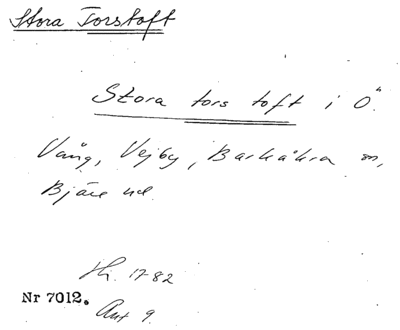 Stora Torstoft
Stora tors toft i Ö.
Vång, Vejby, Barkåkra sn,
Bjäre hd.
Sk. 1782
Nr 7012.
Akt 9.